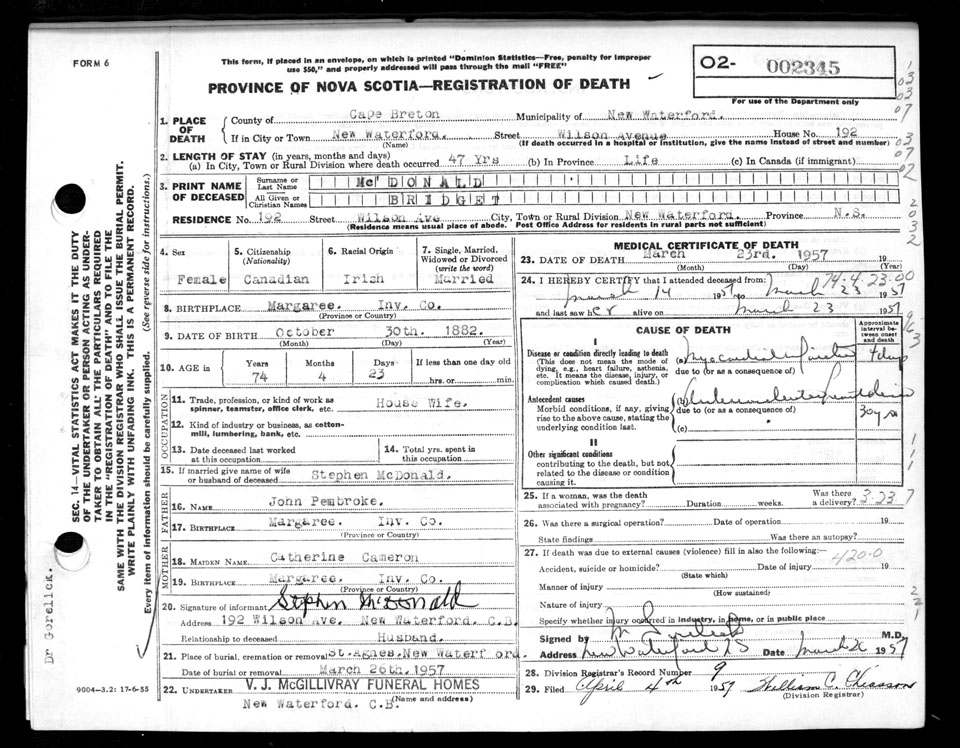 FORM 6
This form, if placed in an envelope, on which is printed "Dominion Statistics—Free, penalty for improper
use $50," and properly addressed will pass through the mail "FREE"
PROVINCE OF NOVA SCOTIA—REGISTRATION OF DEATH
O2- 002345
For use of the Department only
1. PLACE OF DEATH
County of Cape Breton Municipality of New Waterford.
If in City or Town New Waterford. Street Wilson Avenue House No. 192
(Name) (If death occurred in a hospital or institution, give the name instead of street and number)
2. LENGTH OF STAY (in years, months and days)
(a) In City, Town or Rural Division where death occurred 47 Yrs (b) In Province Life (c) In Canada (if immigrant)
3. PRINT NAME OF DECEASED
Surname or Last Name McDONALD
All Given or Christian Names BRIDGET
RESIDENCE No. 192 Street Wilson Ave City, Town or Rural Division New Waterford. Province N.S.
(Residence means usual place of abode. Post Office Address for residents in rural parts not sufficient)
4. Sex
Female
5. Citizenship (Nationality)
Canadian
6. Racial Origin
Irish
7. Single, Married, Widowed or Divorced (write the word)
Married
8. BIRTHPLACE Margaree. Inv. Co.
(Province or Country)
9. DATE OF BIRTH October 30th. 1882.
(Month) (Day) (Year)
10. AGE in
Years Months Days If less than one day old
74 4 23 hrs. or min.
OCCUPATION
11. Trade, profession, or kind of work as spinner, teamster, office clerk, etc. House Wife.
12. Kind of industry or business, as cotton-mill, lumbering, bank, etc.
13. Date deceased last worked at this occupation
14. Total yrs. spent in this occupation
15. If married give name of wife or husband of deceased Stephen McDonald.
FATHER
16. NAME John Pembroke.
17. BIRTHPLACE Margaree. Inv. Co.
(Province or Country)
MOTHER
18. MAIDEN NAME Catherine Cameron
19. BIRTHPLACE Margaree. Inv. Co.
(Province or Country)
20. Signature of informant Stephen McDonald
Address 192 Wilson Ave. New Waterford. C.B.
Relationship to deceased Husband.
21. Place of burial, cremation or removal St.Agnes.New Waterford.
Date of burial or removal March 26th.1957
22. UNDERTAKER V. J. McGILLIVRAY FUNERAL HOMES
(Name and address)
New Waterford. C.B.
MEDICAL CERTIFICATE OF DEATH
23. DATE OF DEATH March 23rd. 1957 19
(Month) (Day) (Year)
74-4-23-00
24. I HEREBY CERTIFY that I attended deceased from:
March 14 1957 to March 23 1957
and last saw her alive on March 23 1957
CAUSE OF DEATH
Approximate interval between onset and death
I
Disease or condition directly leading to death
(This does not mean the mode of dying, e.g., heart failure, asthenia, etc. It means the disease, injury, or complication which caused death.)
(a)
due to (or as a consequence of)
Antecedent causes
Morbid conditions, if any, giving rise to the above cause, stating the underlying condition last.
(b)
due to (or as a consequence of)
(c)
II
Other significant conditions
contributing to the death, but not related to the disease or condition causing it.
25. If a woman, was the death associated with pregnancy? Duration weeks. Was there a delivery?
3-23-7
26. Was there a surgical operation? Date of operation 19
State findings Was there an autopsy?
27. If death was due to external causes (violence) fill in also the following:—
420-0
Accident, suicide or homicide? Date of injury 19
(State which)
Manner of injury
(How sustained)
Nature of injury
Specify whether injury occurred in industry, in home, or in public place
Signed by M. M.D.
Address New Waterford NS Date March 1957
28. Division Registrar's Record Number 9
29. Filed April 4th 1957 William C. Chiasson
(Division Registrar)
SEC. 14—VITAL STATISTICS ACT MAKES IT THE DUTY
OF THE UNDERTAKER OR PERSON ACTING AS UNDER-
TAKER TO OBTAIN ALL THE PARTICULARS REQUIRED
IN THE "REGISTRATION OF DEATH" AND TO FILE THE
SAME WITH THE DIVISION REGISTRAR WHO SHALL ISSUE THE BURIAL PERMIT.
WRITE PLAINLY WITH UNFADING INK. THIS IS A PERMANENT RECORD.
Every item of information should be carefully supplied. (See reverse side for instructions.)
Dr Gorelick.
9004—3.2: 17-6-55